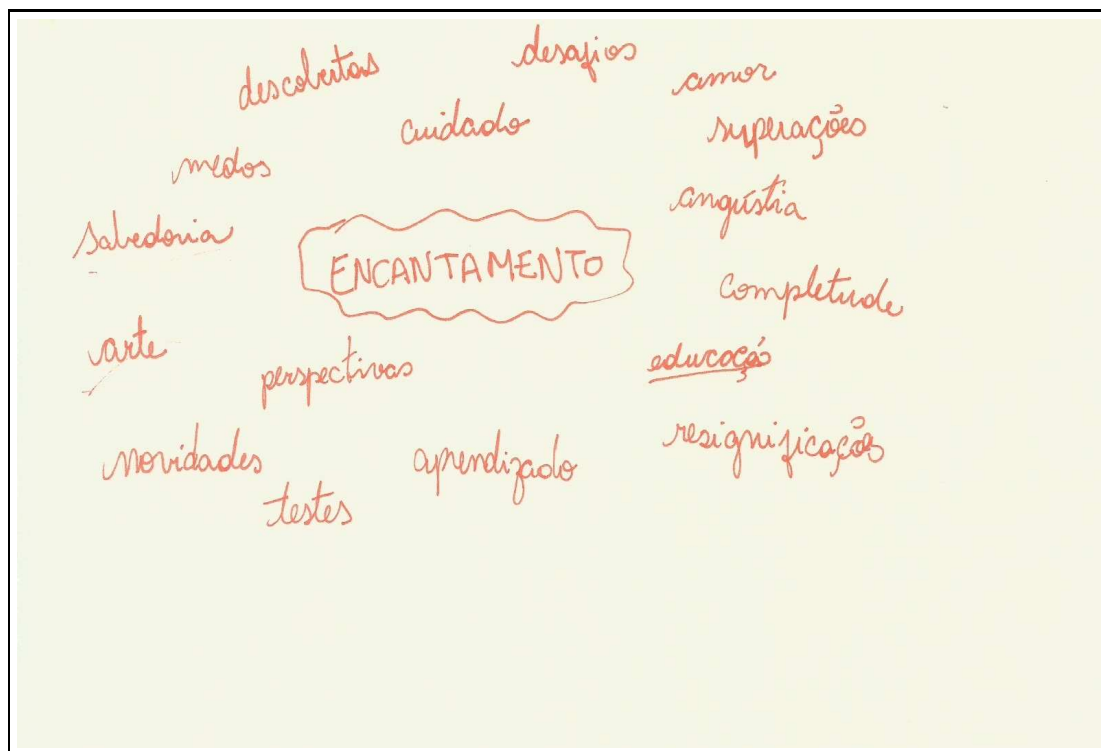 desafios
descobertas
amor
cuidado
superações
medos
angústia
sabedoria
ENCANTAMENTO
completude
arte
perspectivas
educação
novidades
aprendizado
resignificações
testes